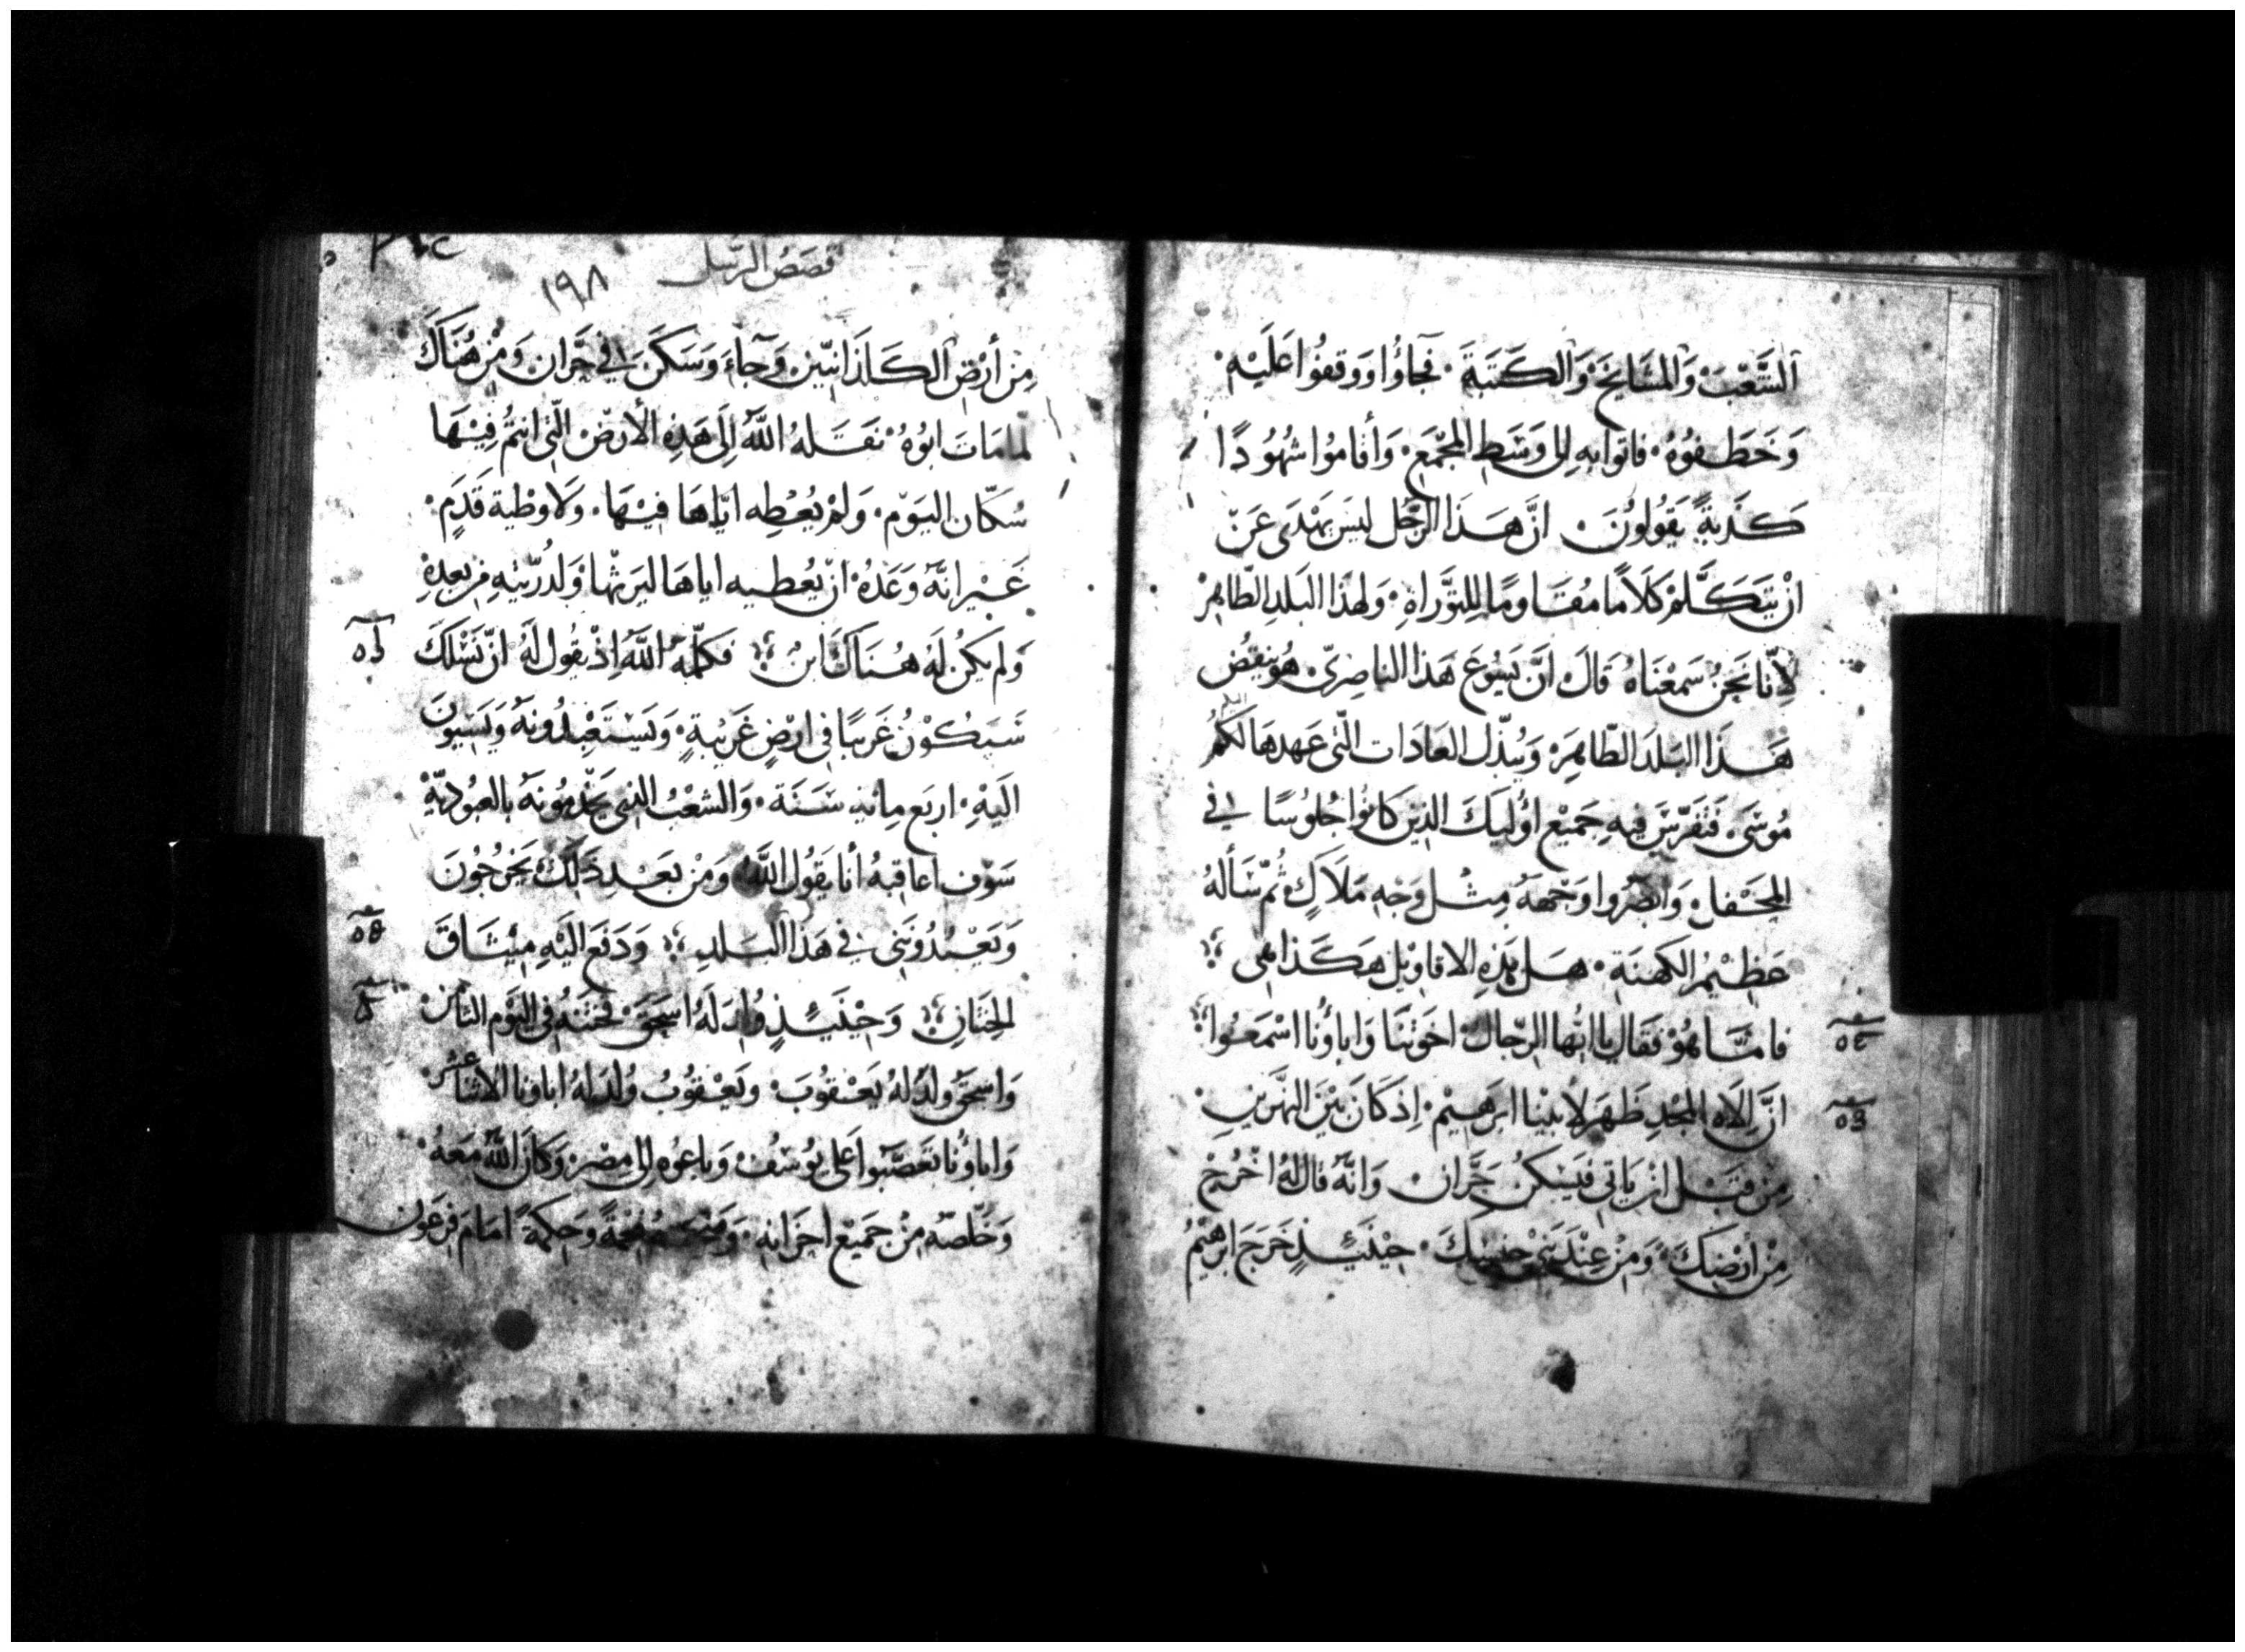 ٱلشَّعْبَ وَٱلمشَايخَ وَٱلكَتَبَةَ ۰ فجَاؤُا وَوقفُوا عَلَيْهِ ۰
وَخَطَفوُهُ ۰ فاتوا بهِ الى وَسَطِ المجْمَعِ ۰ وَأقامُوا شهُودًا
كَذَبةً يَقُولُوُنَ ۰ انَّ هَذَا الرّجُل ليسَ يَهْدَى عَنْ
انْ يَتَكَلَّمْ كَلَامًا مُقَاومًا لِلتَّوْرَاةِ ۰ وَلهذَا البَلدِ الطّاهِرْ
لِانَّا نَحنُ سَمعْنَاهُ قَالَ انَّ يَسُوعَ هَذا الناصِرىّ هُوَ ينقُض
هَذَا البَلدَ الطّاهِرَ وَيُبَدّل العَادَات الّتى عَهدهَا لكُمُ
مُوسَى ۰ فَتَفَرّسَ فيهِ جَميْع اوُليَكَ الذينَ كَانوُا جُلوُسًا فى
المَحْفل وَابْصَرُوا وَجْههُ مِثْل وَجْهِ مَلَاكٍ ثُمّ سَألهُ
عَظِيْمُ الكَهنَةِ ۰ هَل هَذِهِ الاقاوِيْل هَكَذا هِى
فامّا هُوْ فقَال يا ايّها الرّجَالُ اخوَتنَا وَاباؤُنا اسْمَعُوا
انَّ اِلَاه المجْدِ ظَهَرَ لِأَبيْنا ابرَهيْم ۰ اِذ كَانَ بَيْنَ النهْرَينِ
مِن قبَل ان يَاتى فيَسْكُن حَرّان ۰ وَانّهُ قالَ لهُ اخْرُجْ
مِنْ أَرْضِكَ وَمِنْ عِنْدَ بَنِى جِنسِكَ ۰ حِيْنَئِذٍ خَرَجَ ابرَهِيْمُ
٥٢
٥٣
قصَصُ الرّسُل
١٩٨
مِن أَرْضِ ٱلكَلدَانيّين وَجاءَ وَسَكَنَ فى حَرّان وَمِنْ هُنَاكَ
لما مَاتَ ابوُهُ نَقَلهُ اللَّهُ اِلَى هَذِهِ الأرضْ الّتى انتمُ فِيْهَا
سُكّان اليَوْم ۰ وَلمْ يُعْطِه ايّاهَا فيْهَا ۰ وَلا وَطْية قَدَمٍ ۰
غَيْر انهُ وَعَدهُ انْ يُعْطيه اياهَا ليَرثهَا وَلذُرّيّتهِ من بعدِهِ
وَلم يكُن لَهُ هُنَاكَ ابنُ فكَلّمهُ اللَّهُ اِذْ يَقُول لَهُ انّ نَسْلكَ
سَيَكُوْنُ غَريبًا فى ارْضٍ غَريبَةٍ ۰ وَيَسْتَعْبِدُونهُ وَيُسِيْوُنَ
اليَهِ ۰ اربَع مِائةِ سَنَة ۰ وَالشّعْبُ الذى يَخْدِمُونهُ بالعُبُودِيّة
سَوْف اعَاقبهُ أنا يَقوُل اللَّهُ وَمِنْ بَعْد ذَلكَ يَخْرجُونَ
وَيَعْبُدُوُنَنِى فى هَذا البَلدِ وَدَفعَ اليَهِ مِيْثَاقَ
الختَانِ وَحِيْنَئِذٍ وُلِدَ لَهُ اسحَق فختنَهُ فى اليَوم الثامِن
وَاسحَق وُلدَ لهُ يَعْقوُبَ وَيَعْقوُبُ وُلدَ لهُ اباونا الاثنا عشَر
وَاباؤُنا تعَصّبوا عَلى يوُسُف وَباعُوه الى مِصْر وَكانَ اللهُ مَعَهُ
وَخَلّصَهُ مِنْ جَميْع احزَانهِ وَحِكمَةً امَامَ فِرْعَون